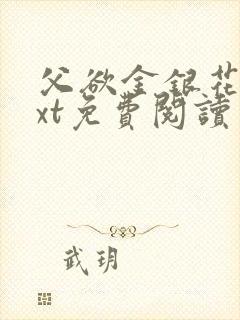 父欲金银花
xt免費閱讀
武玥